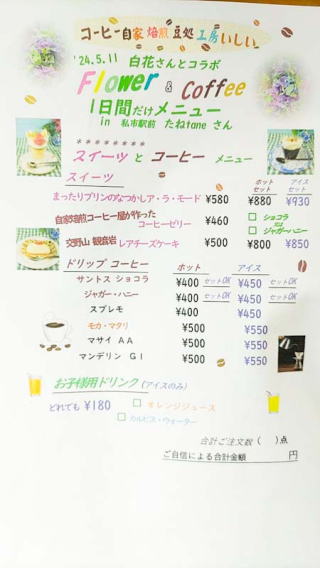 コーヒー自家焙煎豆処工房いしい
'24.5.11 白花さんとコラボ
Flower & Coffee
1日間だけメニュー
in 私市駅前 たねtane さん
********
スイーツ と コーヒー メニュー
スイーツ
ホットセット アイスセット
まったりプリンのなつかしア・ラ・モード ¥580 ¥880 ¥930
自家焙煎コーヒー屋が作った
コーヒーゼリー ¥460 □ ショコラ
□ ジャガーハニー
交野山 観音岩 レアチーズケーキ ¥500 ¥800 ¥850
ドリップ コーヒー ホット アイス
サントス ショコラ ¥400 セットOK ¥450 セットOK
ジャガー・ハニー ¥400 セットOK ¥450 セットOK
スプレモ ¥400 ¥450
モカ・マタリ ¥500 ¥550
マサイ AA ¥500 ¥550
マンデリン G1 ¥500 ¥550
お子様用ドリンク (アイスのみ)
どれでも ¥180 □ オレンジジュース
□ カルピス・ウォーター
合計ご注文数 ( )点
ご自信による合計金額 円